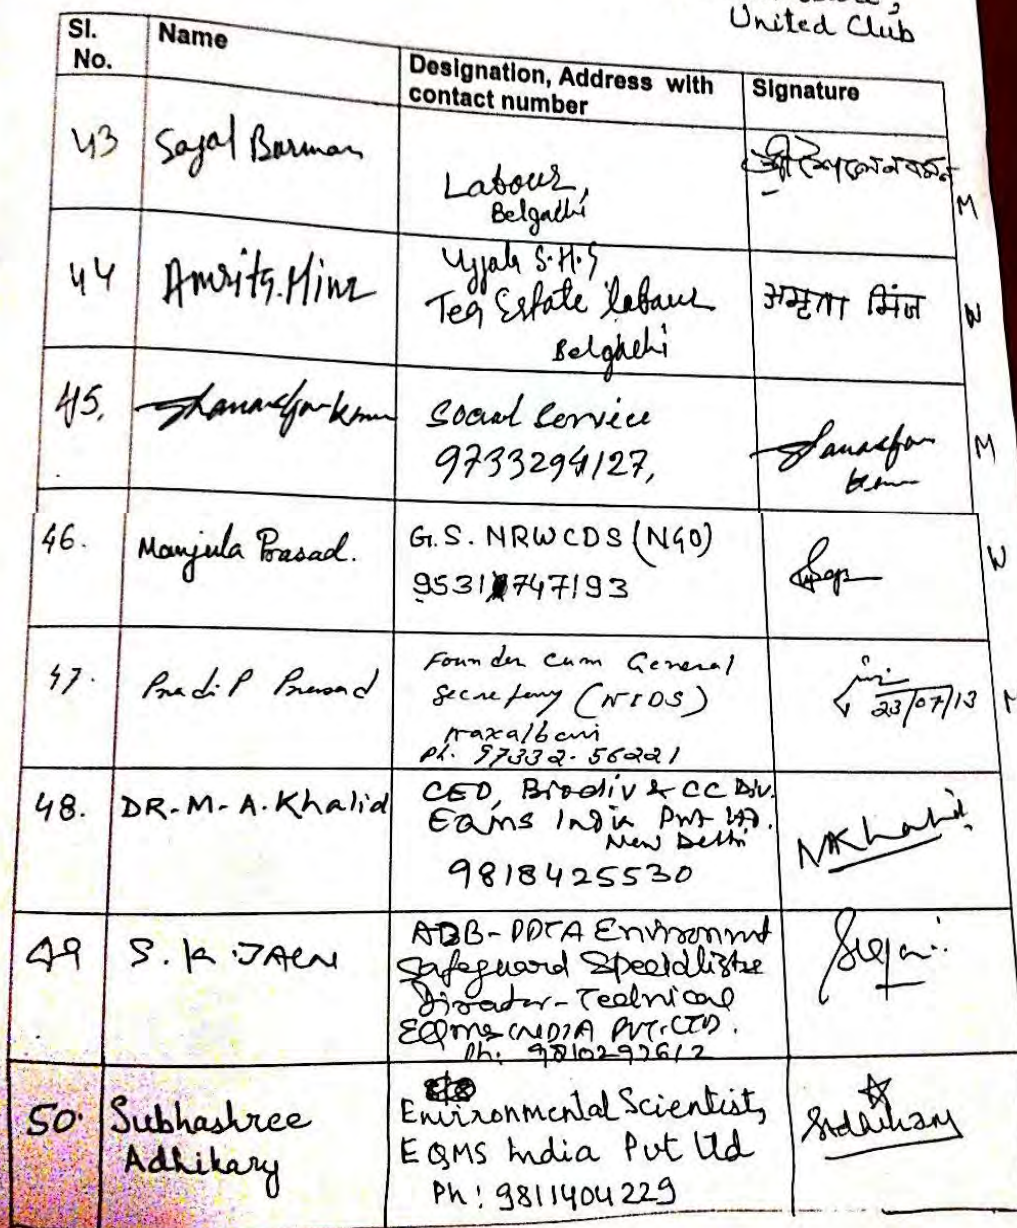 United Club
Sl. No.
Name
Designation, Address with contact number
Signature
43
Sajal Barman
Labour,
Belgachi
M
44
Amrita Minz
Ujjala S.H.G
Tea Estate labour
Belgachi
अमृता मिंज
W
45.
Social Service
9733294127,
M
46.
Manjula Prasad.
G.S. NRWCDS (NGO)
9531747193
W
47.
Pradip Prasad
Founder cum General
Secretary (NIDS)
Naxalbari
Ph. 97332-56221
23/07/13
48.
DR. M. A. Khalid
CEO, Biodiv & CC Div.
EQMS India Pvt Ltd.
New Delhi
9818425530
MKhalid
49
S. K JAIN
ADB-PPTA Environmnt
Safeguard Specialist
Director-Technical
EQMS INDIA PVT. LTD.
50.
Subhashree
Adhikary
Environmental Scientist,
EQMS India Pvt Ltd
Ph: 9811404229
SAdhikary